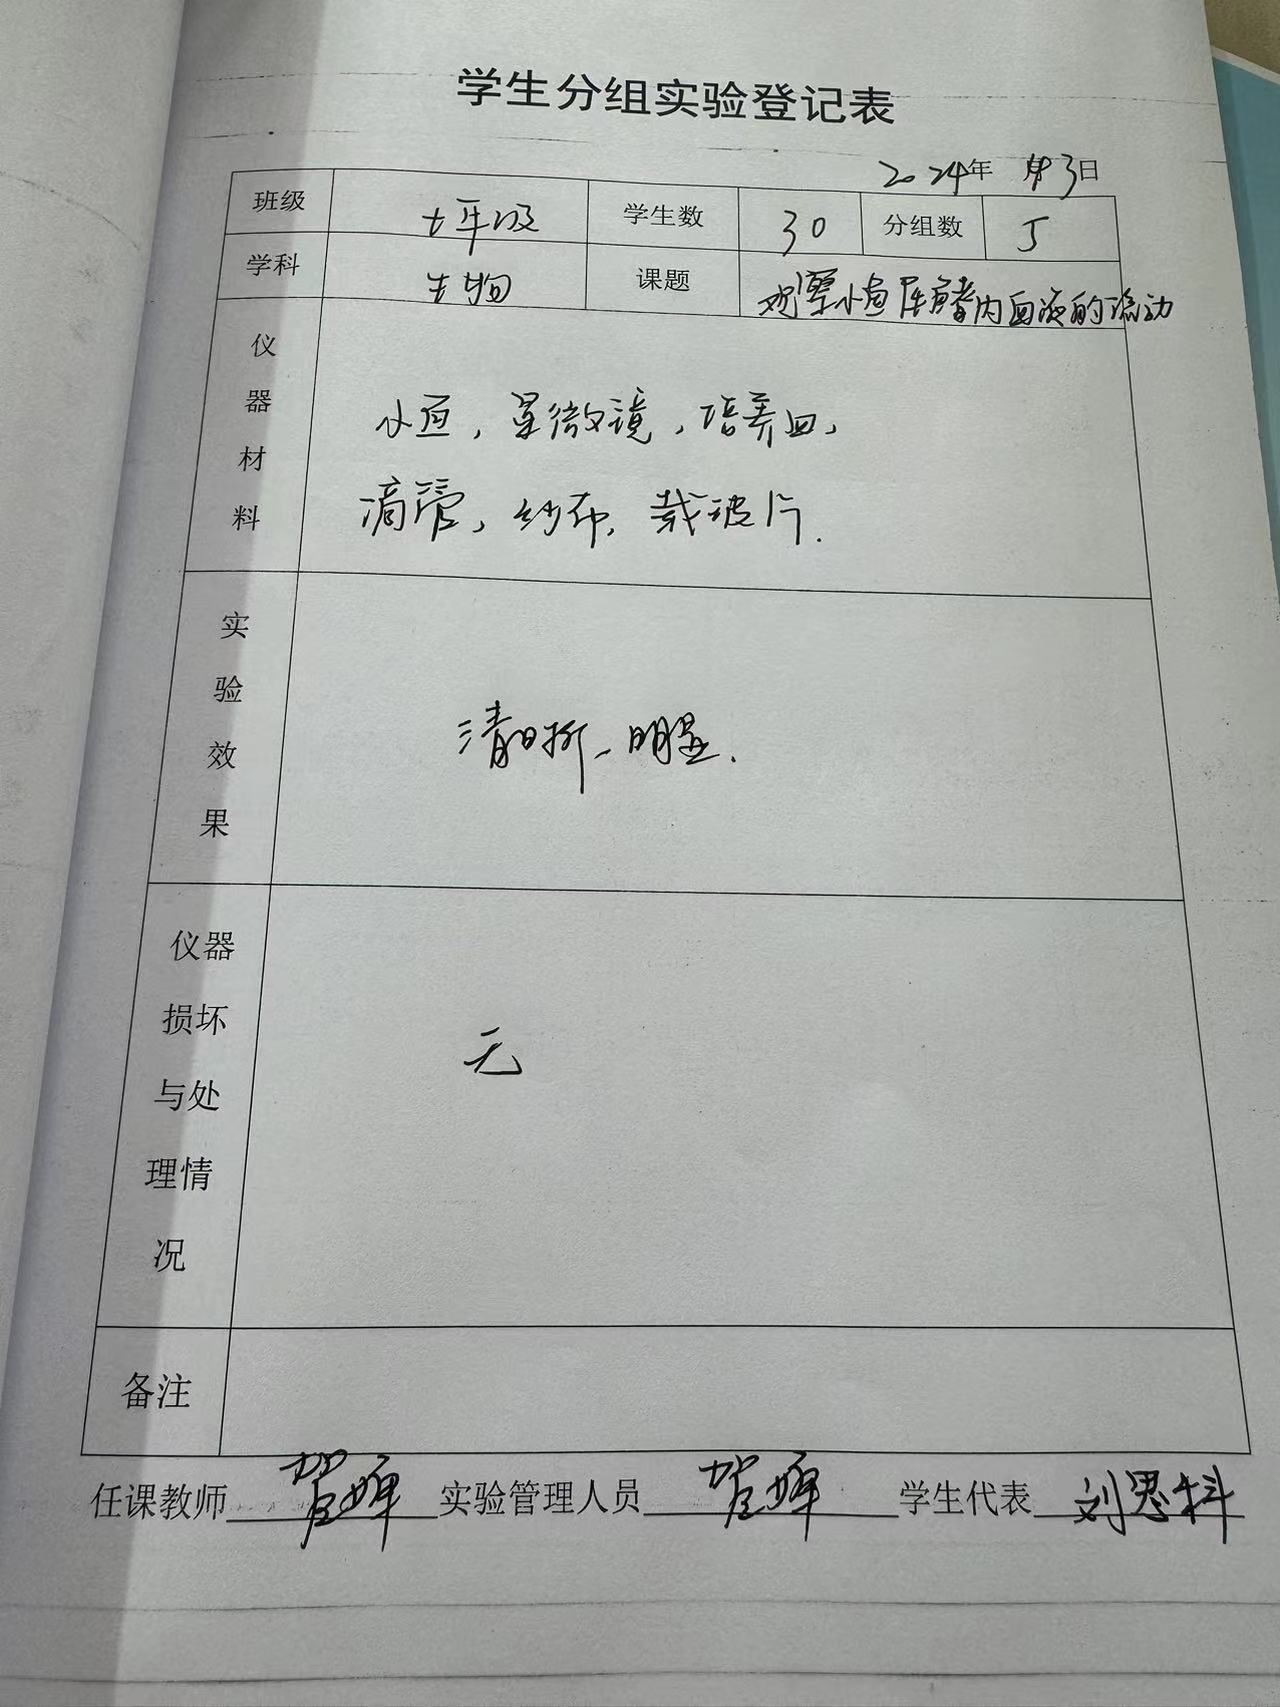 学生分组实验登记表
2024年 月3日
班级 七年级 学生数 30 分组数 5
学科 生物 课题 观察小鱼尾鳍内血液的流动
仪器材料
小鱼，显微镜，培养皿，
滴管，纱布，载玻片.
实验效果
清晰、明显.
仪器
损坏
与处
理情
况
无
备注
任课教师 贺婵 实验管理人员 贺婵 学生代表 刘思